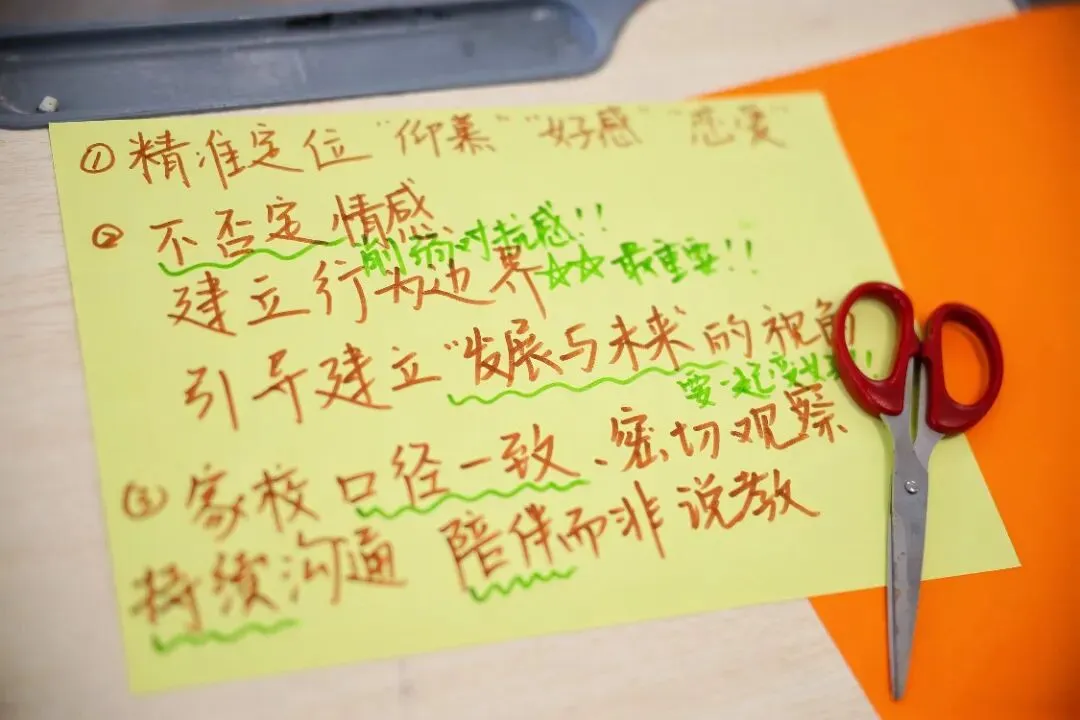 ① 精准定位 "仰慕" "好感" "恋爱"
② 不否定情感
削弱对抗感!!
建立行为边界
☆☆ 最重要!!
引导建立"发展与未来"的视角
要一起变
③ 家校口径一致、密切观察
持续沟通 陪伴而非说教